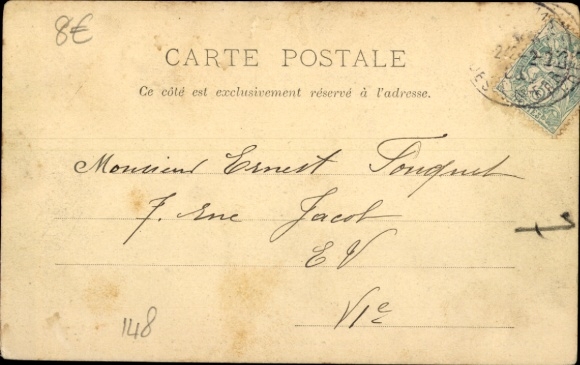 8€
CARTE POSTALE
Ce côté est exclusivement réservé à l'adresse.
Monsieur Ernest Fouquet
7. rue Jacob
EV
VIe
148